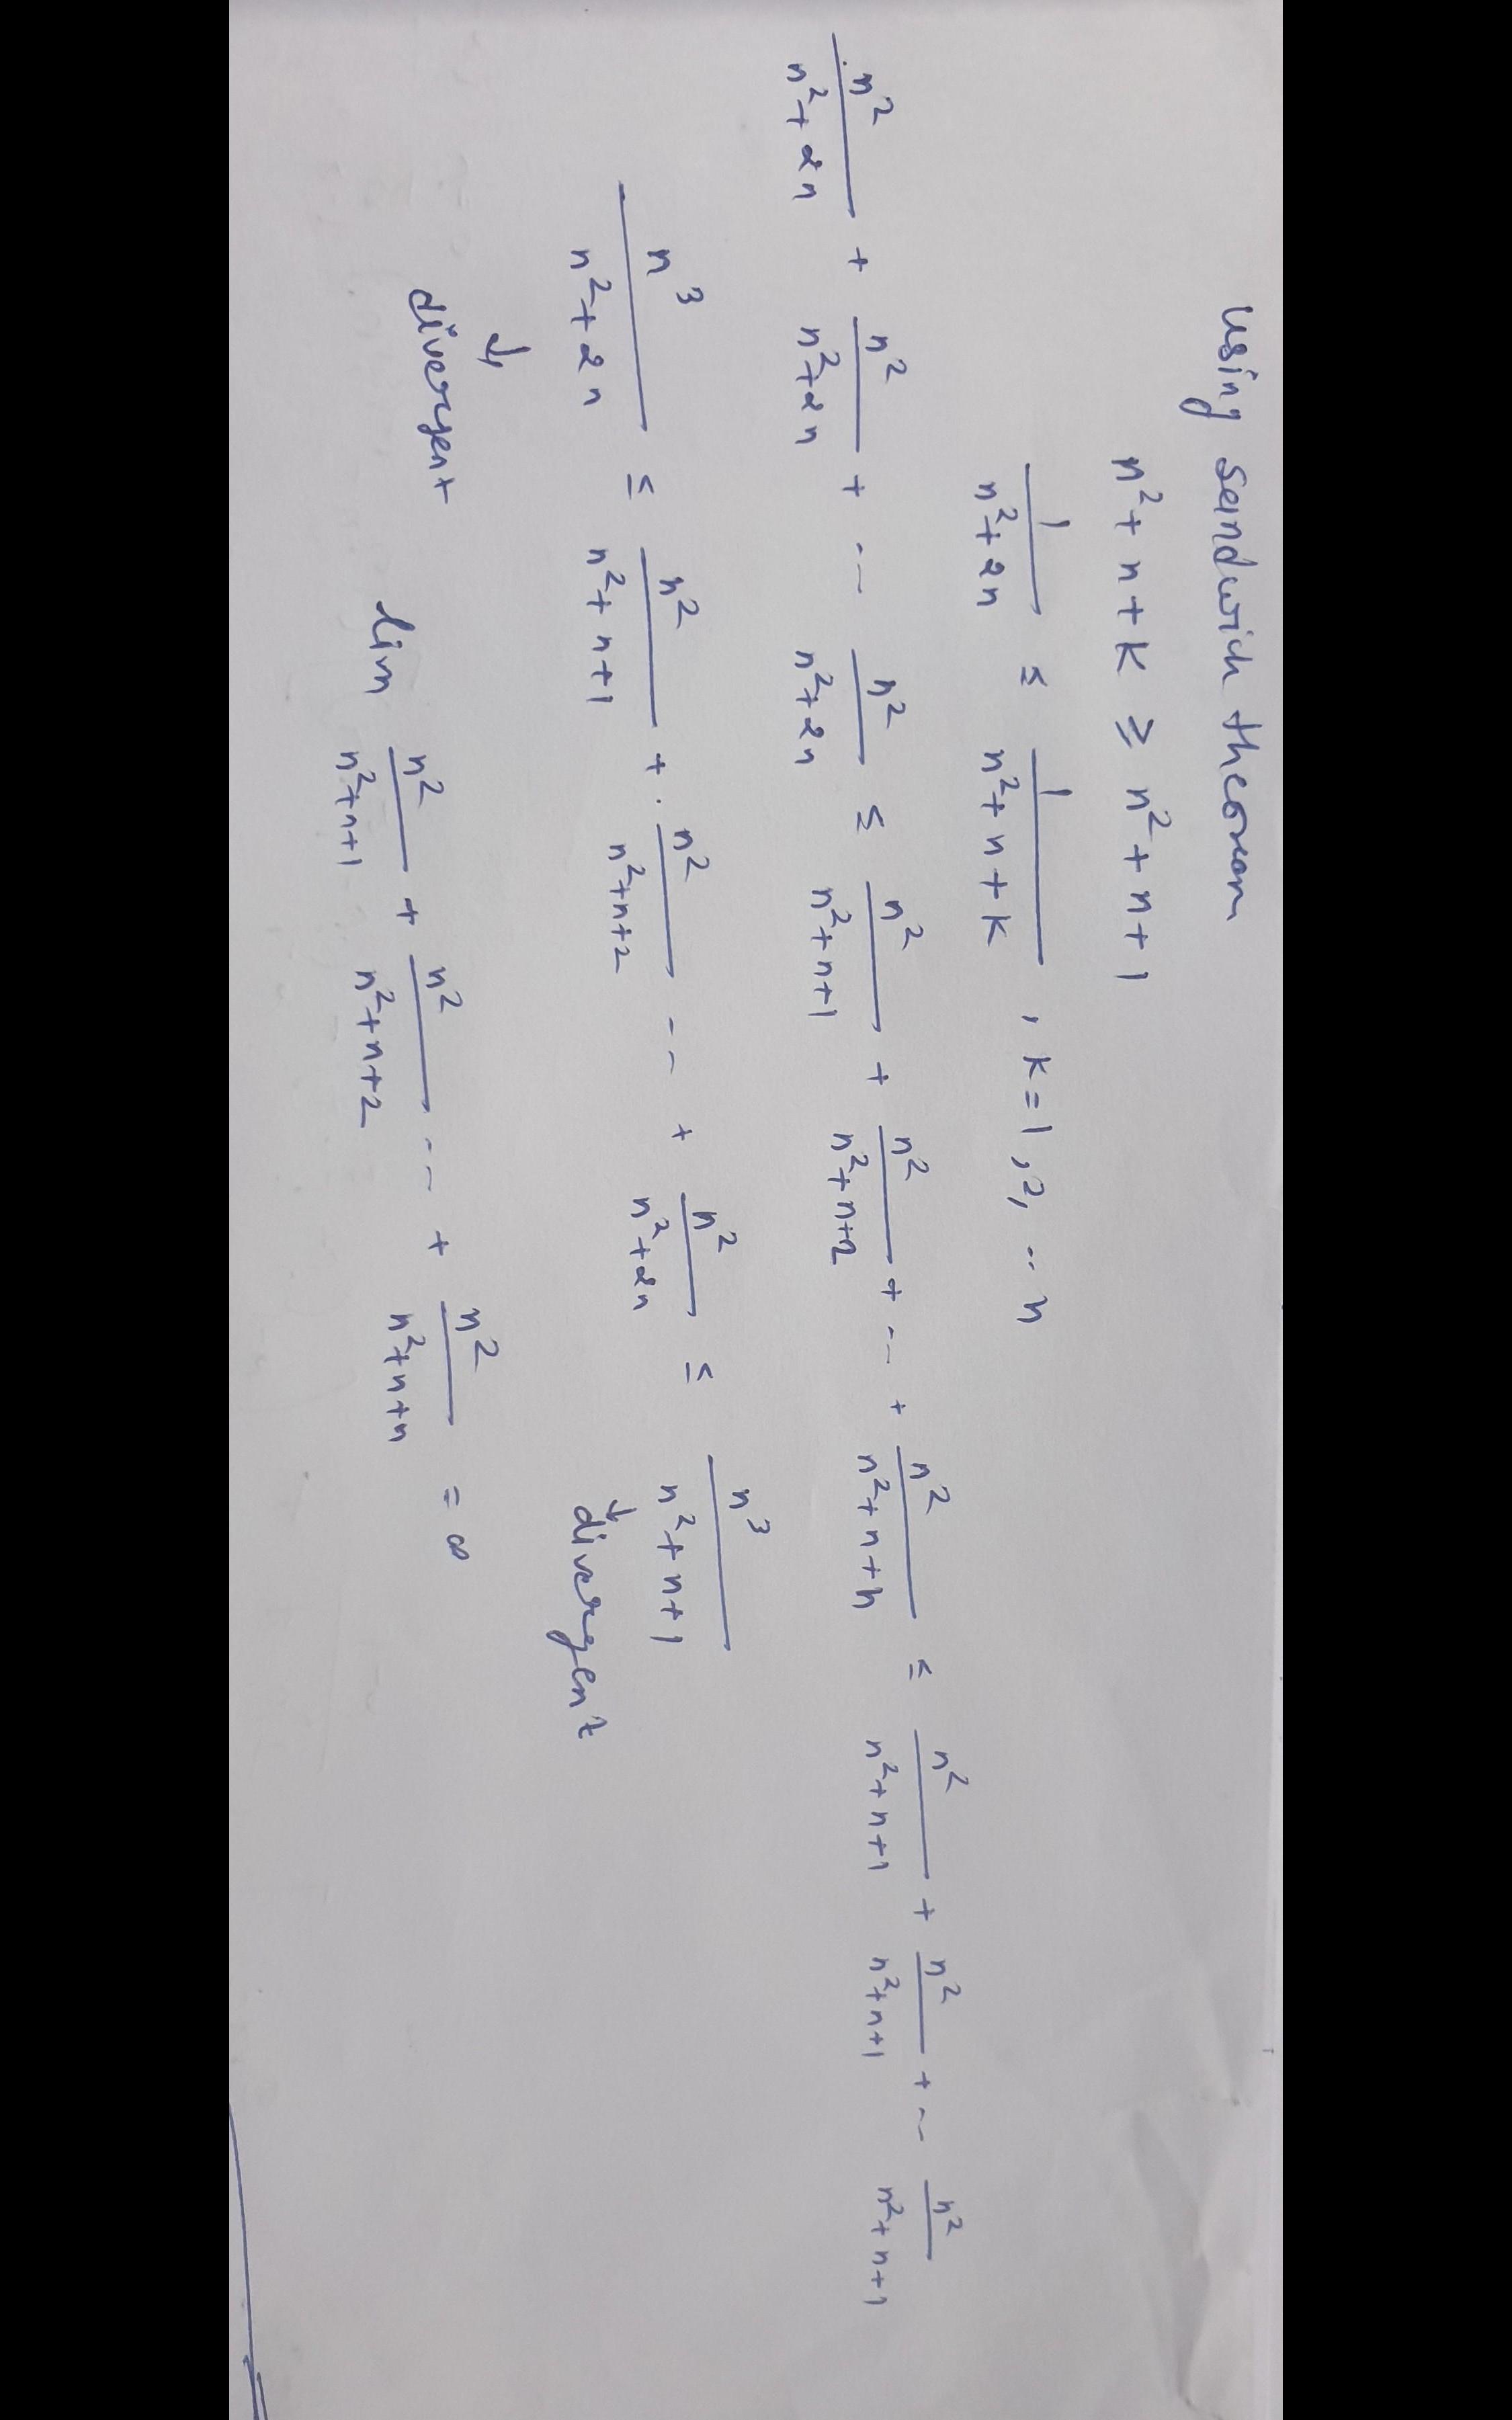 Using sandwich theorem
n² + n + k ≥ n² + n + 1
1/(n² + 2n) ≤ 1/(n² + n + k) , k = 1, 2, .. n
n²/(n² + 2n) + n²/(n² + 2n) + ... n²/(n² + 2n) ≤ n²/(n² + n + 1) + n²/(n² + n + 2) + ... + n²/(n² + n + n) ≤ n²/(n² + n + 1) + n²/(n² + n + 1) + ... n²/(n² + n + 1)
n³/(n² + 2n) ≤ n²/(n² + n + 1) + n²/(n² + n + 2) ... + n²/(n² + 2n) ≤ n³/(n² + n + 1)
↓ ↓
divergent divergent
lim n²/(n² + n + 1) + n²/(n² + n + 2) ... + n²/(n² + n + n) = ∞